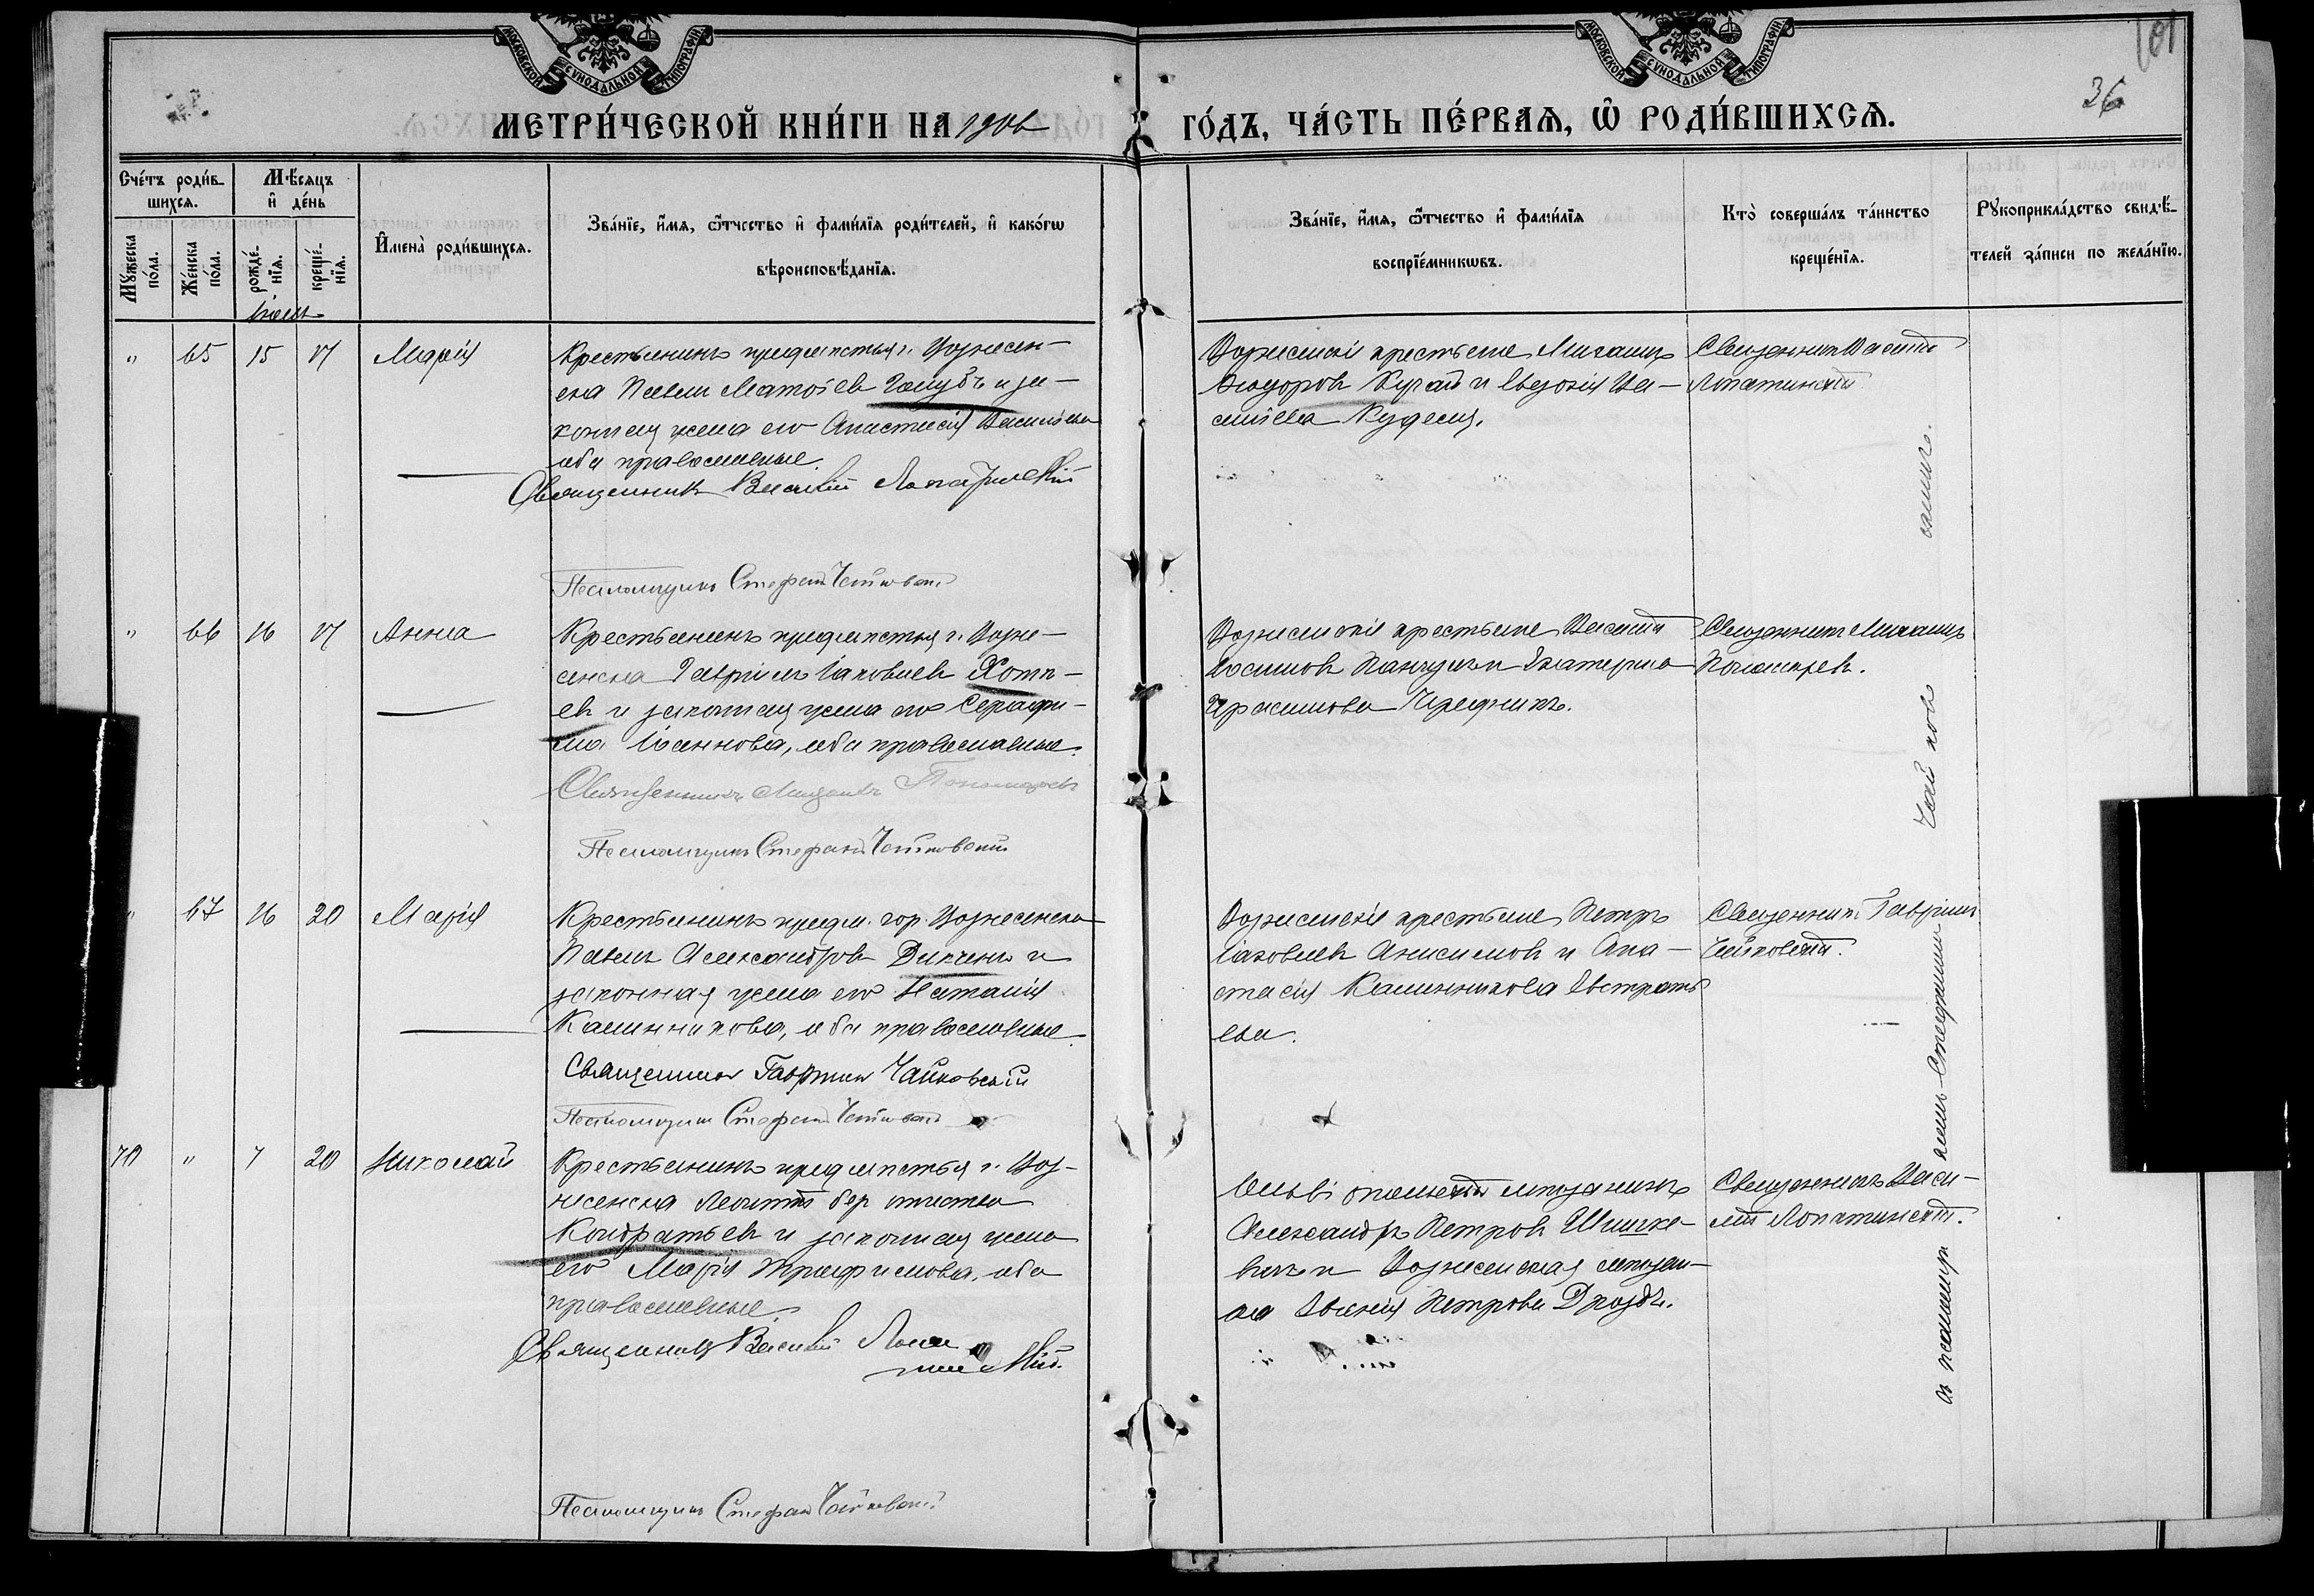 101
36
МОСКОВСКОЙ СѴНОДАЛЬНОЙ ТИПОГРАФІИ
МОСКОВСКОЙ СѴНОДАЛЬНОЙ ТИПОГРАФІИ
МЕТРИ́ЧЕСКОЙ КНИ́ГИ НА 1906 ГО́ДЪ, ЧА́СТЬ ПЕ́РВАѦ, Ѽ РОДИ́ВШИХСѦ.
Сче́тъ роди́в-
шихсѧ.
Мꙋ́жеска по́ла.
Же́нска по́ла.
Мѣ́сѧцъ
и҆ де́нь
рожде́-
нїѧ.
креще́-
нїѧ.
И҆мена̀ роди́вшихсѧ.
Зва́нїе, и҆́мѧ, ѻ҆́тчество и҆ фами́лїѧ роди́телей, и҆ како́гѡ
вѣроисповѣ́данїѧ.
Зва́нїе, и҆́мѧ, ѻ҆́тчество и҆ фами́лїѧ
воспрїе́мникѡвъ.
Кто̀ соверша́лъ та́инство
креще́нїѧ.
Рꙋкоприкла́дство свидѣ́-
телей за́писи по жела́нїю.
" 65 15 17 Марія
Крестьянинъ предмѣстья г. Вознесен-
ска Павелъ Матѳіевъ Голубъ и за-
конная жена его Анастасія Васильева
оба православные.
Священникъ Василій Лопатинскій
Псаломщикъ Стефанъ Чайковскій
Вознесенскіе крестьяне Михаилъ
Ѳеодоровъ Кугай и Евдокія Ва-
сильева
Священникъ Василій
Лопатинскій
" 66 16 17 Анна
Крестьянинъ предмѣстья г. Возне-
сенска Гавріилъ Іаковлевъ Хотн-
евъ и законная жена его Серафи-
ма Іоаннова, оба православные.
Священникъ Михаилъ Пономаревъ
Псаломщикъ Стефанъ Чайковскій
Вознесенскіе крестьяне Василій
и Екатерина
Герасимова
Священникъ Михаилъ
Пономаревъ.
" 67 16 20 Марія
Крестьянинъ предм. гор. Вознесенска
Павелъ Александровъ Дикинъ и
законная жена его Наталія
Калинникова, оба православные.
Священникъ Гавріилъ Чайковскій
Псаломщикъ Стефанъ Чайковскій
Вознесенскіе крестьяне Петръ
Іаковлевъ Анисимовъ и Ана-
стасія Калинникова Евстратъ
ева.
Священникъ Гавріилъ
Чайковскій.
70 " 7 20 Николай
Крестьянинъ предмѣстья г. Воз-
несенска Леонтій безъ отчества
Кондратьевъ и законная жена
его Марія Трифилова, оба
православные.
Священникъ Василій Лопа
тинскій.
Псаломщикъ Стефанъ Чайковскій
Ольвіопольскій мѣщанинъ
Александръ Петровъ Шишке-
вичъ и Вознесенская мѣщан-
ка Евгенія Петрова Дроздъ.
Священникъ Васи-
лій Лопатинскій.
съ псаломщикомъ Стефаномъ Чайков скимъ.